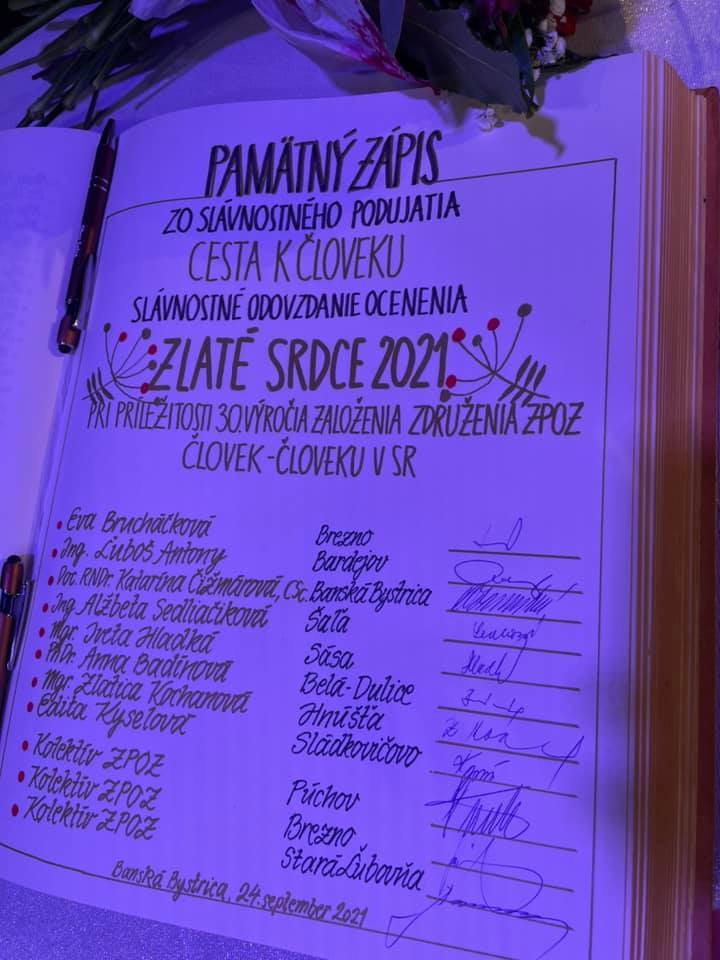 PAMÄTNÝ ZÁPIS
ZO SLÁVNOSTNÉHO PODUJATIA
CESTA K ČLOVEKU
SLÁVNOSTNÉ ODOVZDANIE OCENENIA
ZLATÉ SRDCE 2021
PRI PRÍLEŽITOSTI 30. VÝROČIA ZALOŽENIA ZDRUŽENIA ZPOZ
ČLOVEK - ČLOVEKU V SR
Eva Brucháčková Brezno
Ing. Ľuboš Antony Bardejov
Doc. RNDr. Katarína Čižmárová, CSc. Banská Bystrica
Ing. Alžbeta Sedliačiková Šaľa
Mgr. Iveta Hladká Sása
PhDr. Anna Badinová Belá-Dulice
Mgr. Zlatica Kochanová Hnúšťa
Edita Kyseľová Sládkovičovo
Kolektív ZPOZ Púchov
Kolektív ZPOZ Brezno
Kolektív ZPOZ Stará Ľubovňa
Banská Bystrica, 24. september 2021